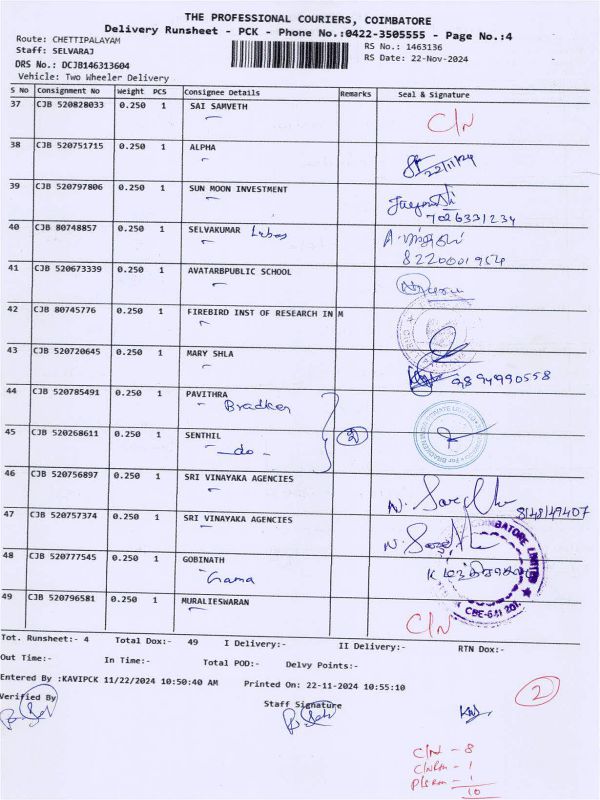 THE PROFESSIONAL COURIERS, COIMBATORE
Delivery Runsheet - PCK - Phone No.:0422-3505555 - Page No.:4
Route: CHETTIPALAYAM
Staff: SELVARAJ
RS No.: 1463136
RS Date: 22-Nov-2024
DRS No.: DCJB146313604
Vehicle: Two Wheeler Delivery
S No Consignment No Weight PCS Consignee Details Remarks Seal & Signature
37 CJB 520828033 0.250 1 SAI SAMVETH C/N
38 CJB 520751715 0.250 1 ALPHA 22/11/24
39 CJB 520797806 0.250 1 SUN MOON INVESTMENT
7026331234
40 CJB 80748857 0.250 1 SELVAKUMAR
8220001954
41 CJB 520673339 0.250 1 AVATARBPUBLIC SCHOOL
42 CJB 80745776 0.250 1 FIREBIRD INST OF RESEARCH IN M
43 CJB 520720645 0.250 1 MARY SHLA
9894990558
44 CJB 520785491 0.250 1 PAVITHRA
Bradken
45 CJB 520268611 0.250 1 SENTHIL 2
- do -
46 CJB 520756897 0.250 1 SRI VINAYAKA AGENCIES
8148149407
47 CJB 520757374 0.250 1 SRI VINAYAKA AGENCIES
48 CJB 520777545 0.250 1 GOBINATH
49 CJB 520796581 0.250 1 MURALIESWARAN C/N
Tot. Runsheet:- 4 Total Dox:- 49 I Delivery:- II Delivery:- RTN Dox:-
Out Time:- In Time:- Total POD:- Delvy Points:-
Entered By :KAVIPCK 11/22/2024 10:50:40 AM Printed On: 22-11-2024 10:55:10
2
Verified By Staff Signature
C/N - 8
- 1
- 1
10